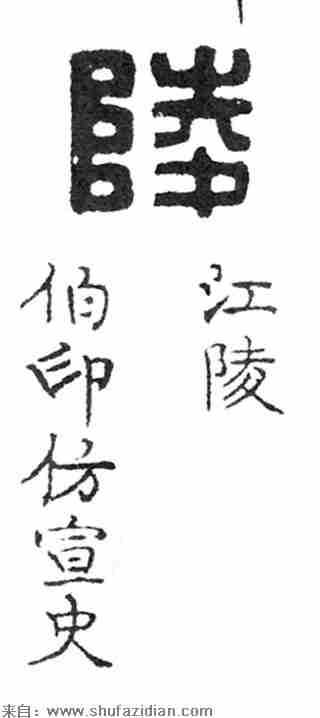 陵
江陵
伯印仿宣史
来自：www.shufazidian.com